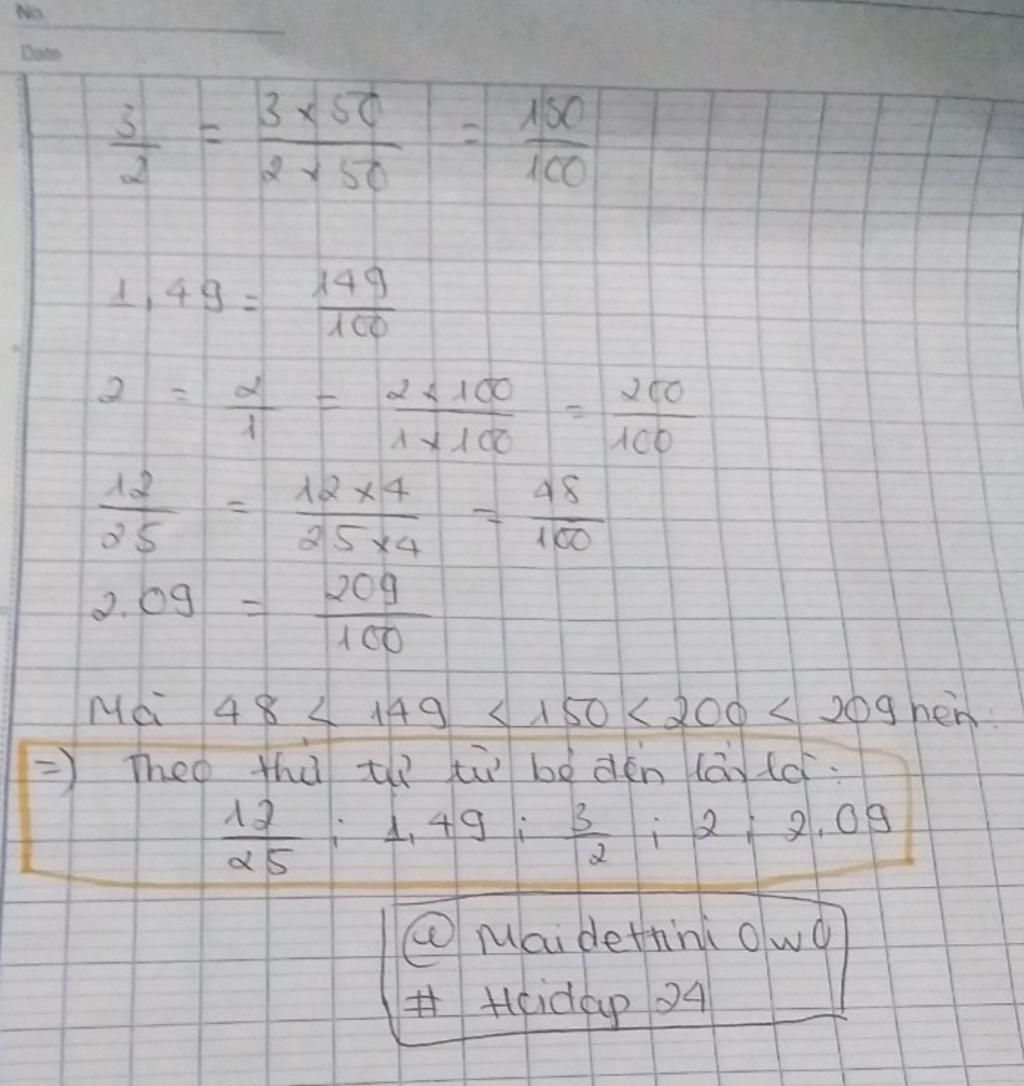 No.
Date
3/2 = 3 × 50 / 2 × 50 = 150/100
1,49 = 149/100
2 = 2/1 = 2 × 100 / 1 × 100 = 200/100
12/25 = 12 × 4 / 25 × 4 = 48/100
2.09 = 209/100
Mà 48 < 149 < 150 < 200 < 209 nên
=) Theo thứ tự từ bé đến lớn là:
12/25 ; 1,49 ; 3/2 ; 2 ; 2.09
@ Maidethini OwO
# Hoidap 24